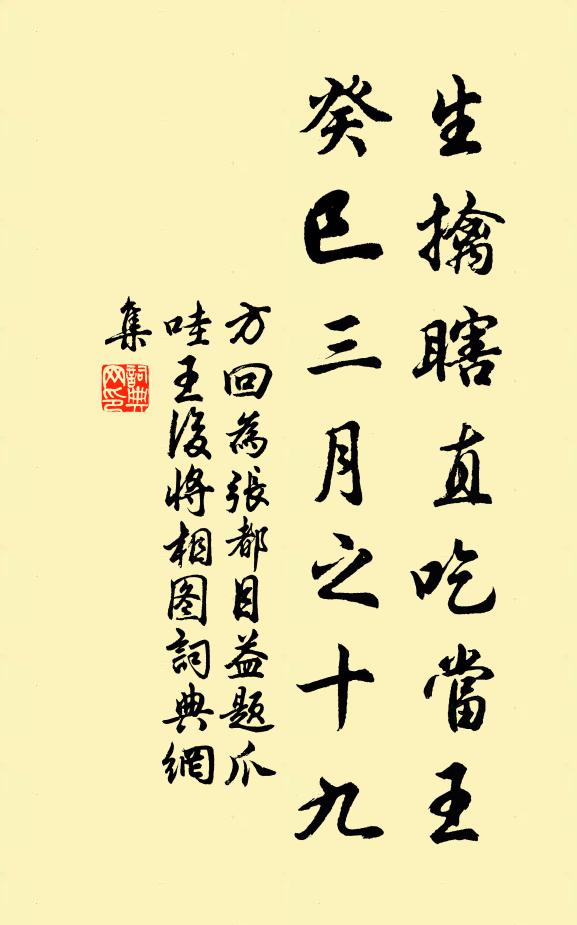 生擒瞎直吃當王
癸巳三月之十九
方回為張都目益題爪
哇王後將相图詞典網
集
詞典
网印